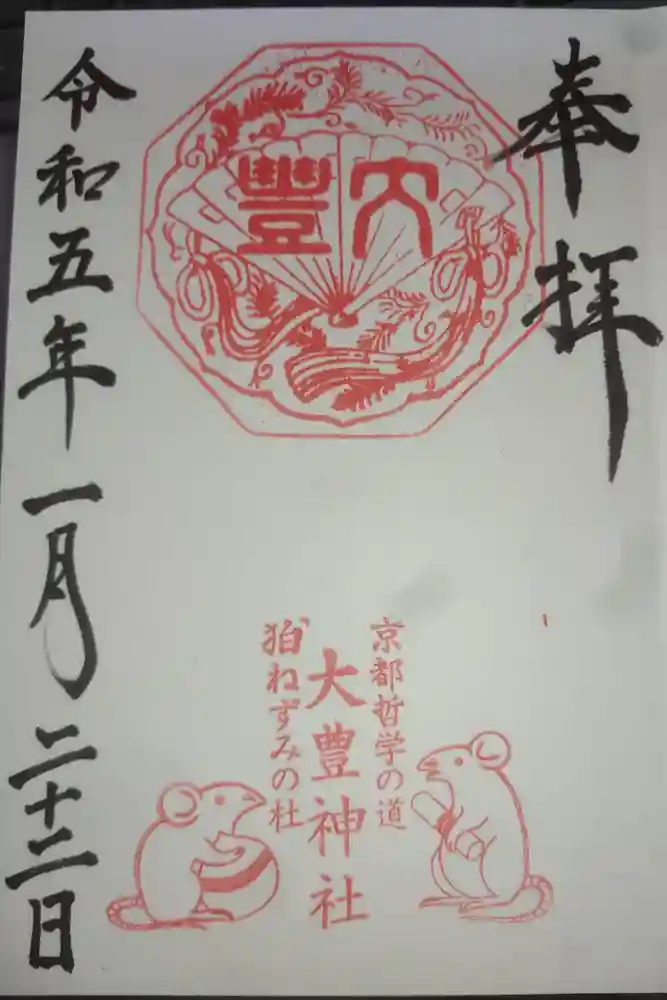 奉拝
大豊
京都哲学の道
大豊神社
狛ねずみの杜
令和五年一月二十二日